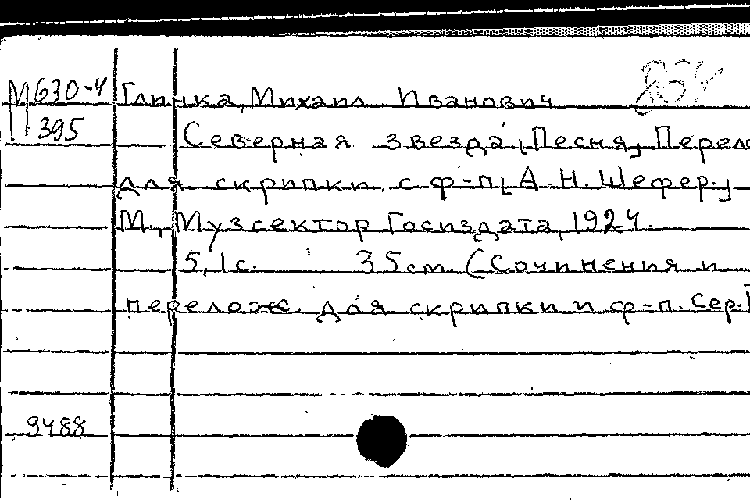 М630-4 Глинка, Михаил Иванович
395 Северная звезда [Песня] Перел
для скрипки с ф-п [А. Н. Шефер.]
М., Музсектор Госиздата, 1924.
5, 1 с. 35 см (Сочинения и
перелож. для скрипки и ф-п. Сер.
9488